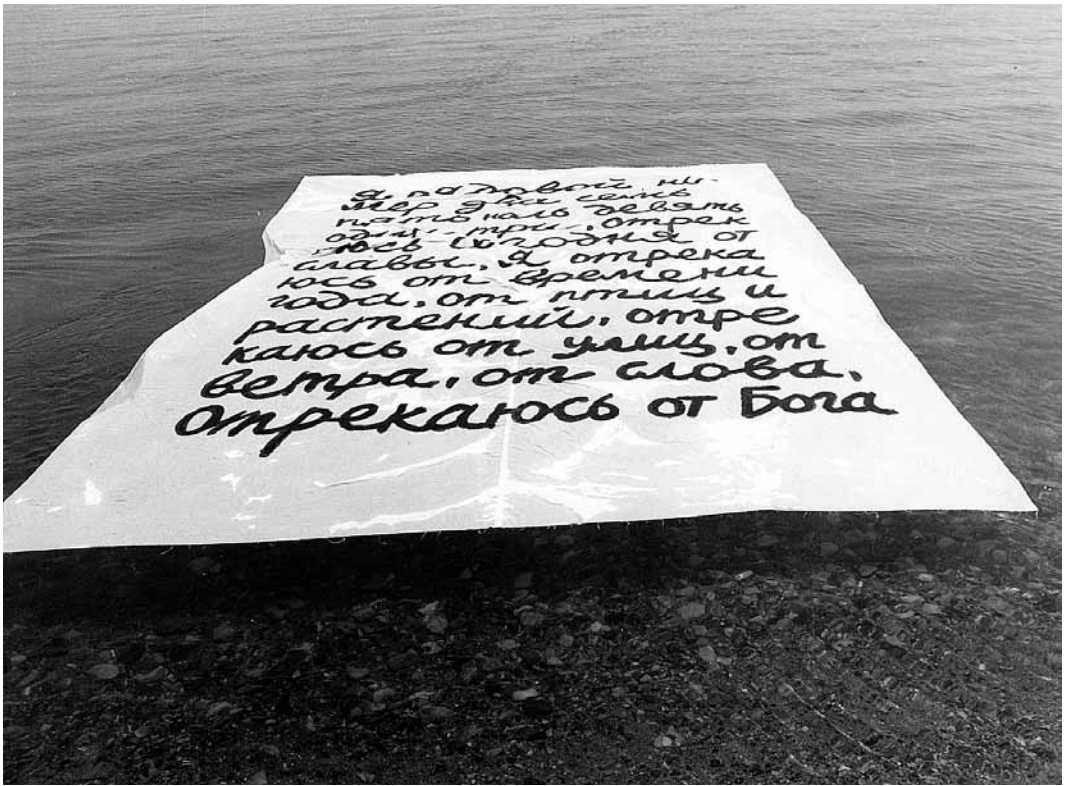 Я, рядовой но-
мер два семь
пять ноль девять
один три, отрек
аюсь сегодня от
славы, Я отрека
юсь от времени
года, от птиц и
растений, отре
каюсь от улиц, от
ветра, от слова,
отрекаюсь от Бога